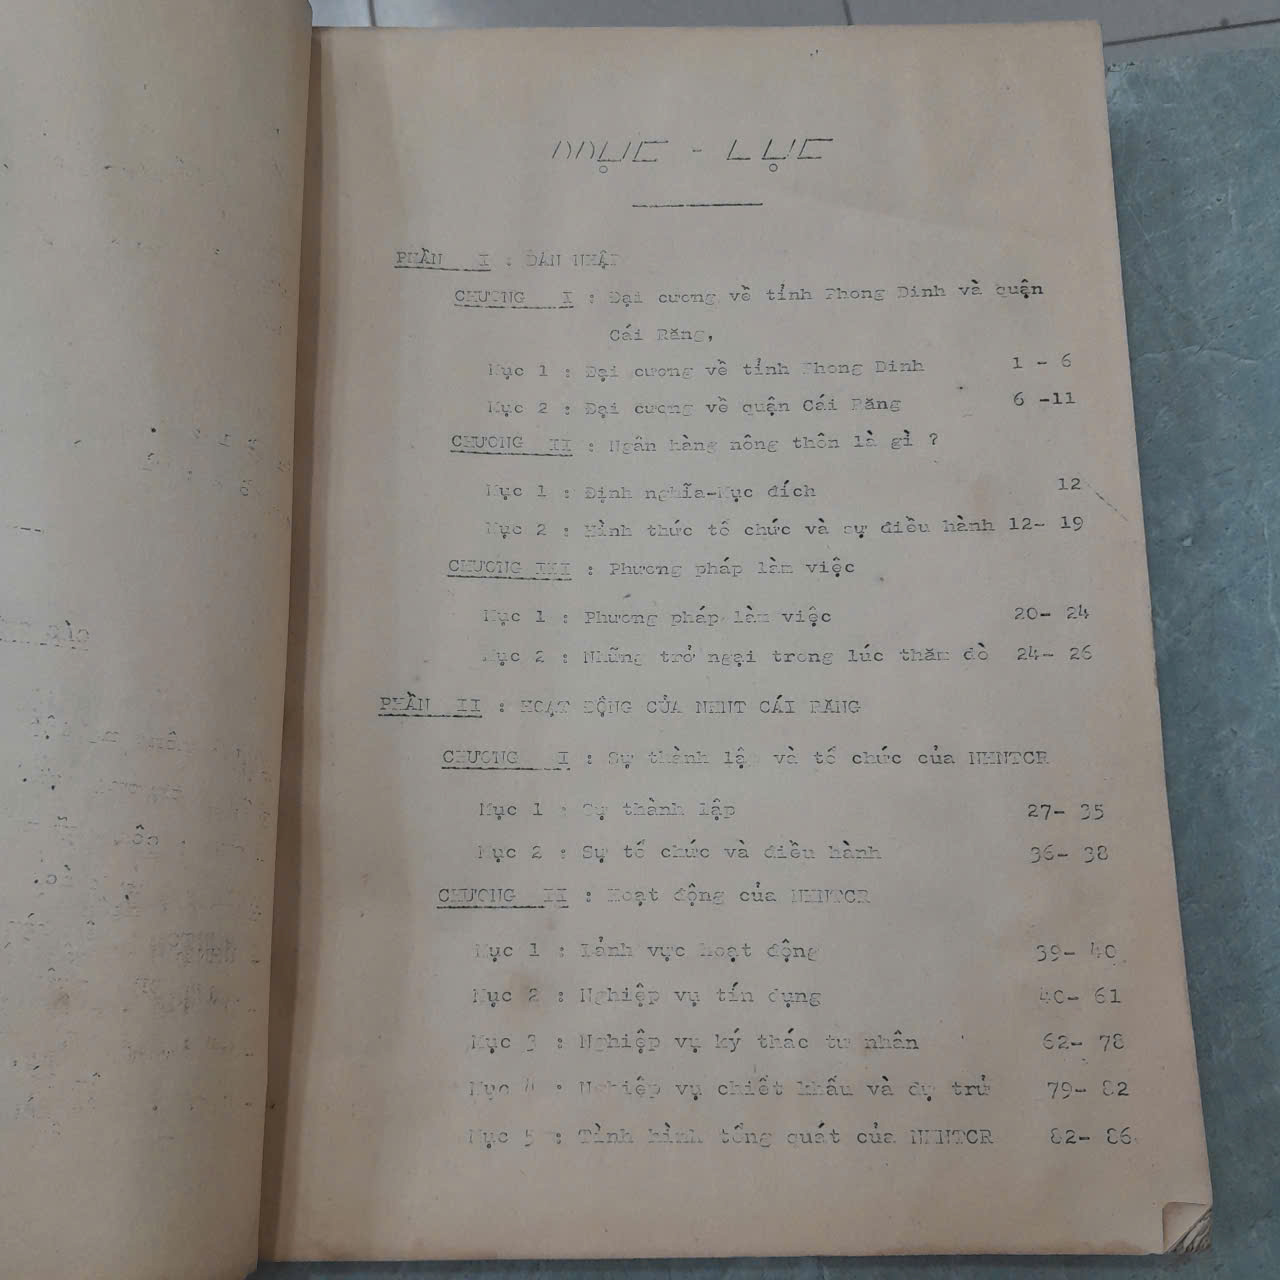 MỤC - LỤC
PHẦN I : DẪN NHẬP
CHƯƠNG I : Đại cương về tỉnh Phong Dinh và quận
Cái Răng,
Mục 1 : Đại cương về tỉnh Phong Dinh 1 - 6
Mục 2 : Đại cương về quận Cái Răng 6 -11
CHƯƠNG II : Ngân hàng nông thôn là gì ?
Mục 1 : Định nghĩa-Mục đích 12
Mục 2 : Hình thức tổ chức và sự điều hành 12- 19
CHƯƠNG III : Phương pháp làm việc
Mục 1 : Phương pháp làm việc 20- 24
Mục 2 : Những trở ngại trong lúc thăm dò 24- 26
PHẦN II : HOẠT ĐỘNG CỦA NHNT CÁI RĂNG
CHƯƠNG I : Sự thành lập và tổ chức của NHNTCR
Mục 1 : Sự thành lập 27- 35
Mục 2 : Sự tổ chức và điều hành 36- 38
CHƯƠNG II : Hoạt động của NHNTCR
Mục 1 : Lảnh vực hoạt động 39- 40
Mục 2 : Nghiệp vụ tín dụng 40- 61
Mục 3 : Nghiệp vụ ký thác tư nhân 62- 78
Mục 4 : Nghiệp vụ chiết khấu và dự trử 79- 82
Mục 5 : Tình hình tổng quát của NHNTCR 82- 86